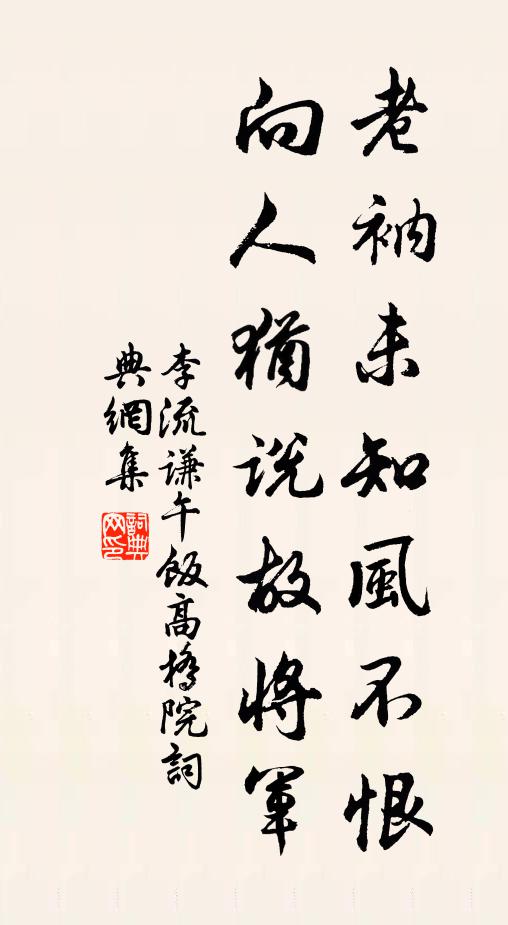 老衲未知風不恨
向人猶說故將軍
李流謙午飯高橋院詞
典網集
詞典网印